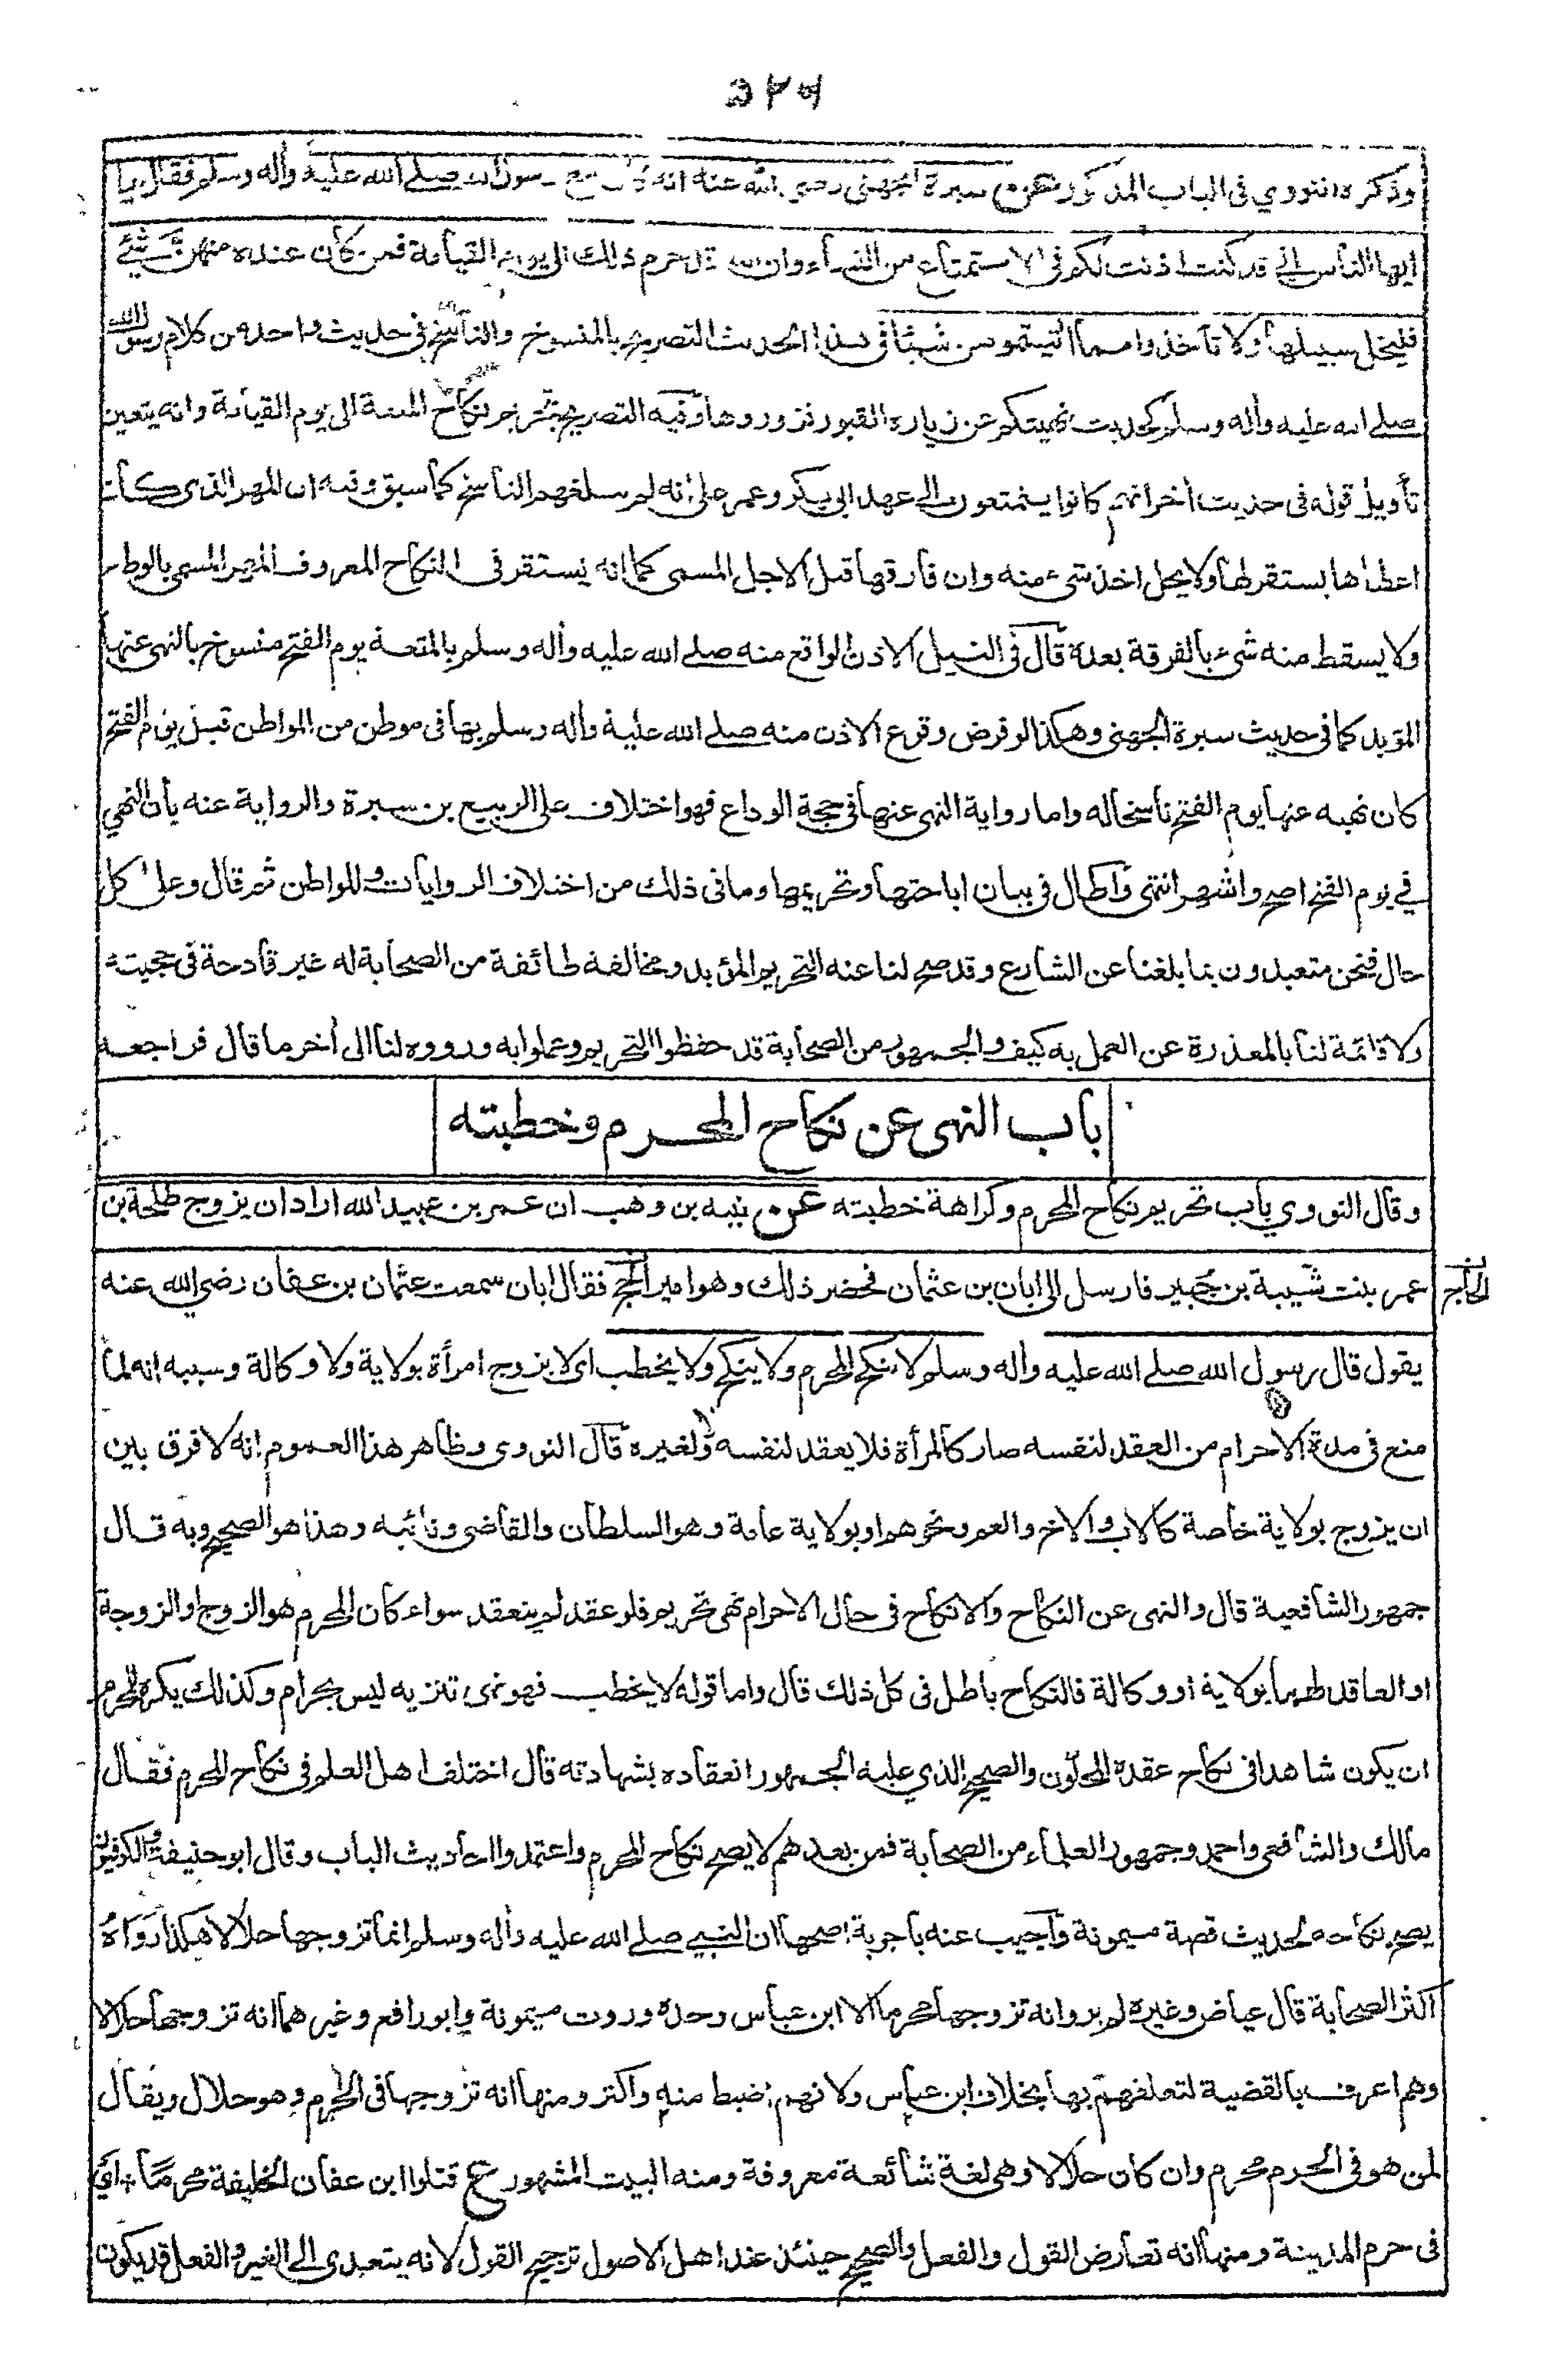 وذكره النووي في الباب المذكور عن سبرة الجهني رضي الله عنه انه كان مع رسول الله صلے الله عليه وأله وسلم فقال يا
ايها الناس اني قد كنت اذنت لكم في الاستمتاع من النساء وان الله قد حرم ذلك الى يوم القيامة فمن كان عنده منهن شئ
فليخل سبيلها ولا تأخذوا مما أتيتموهن شيئا في هذا الحديث التصريح بالمنسوخ والناسخ في حديث واحد من كلام رسول الله
صلے الله عليه وأله وسلم كحديث نهيتكم عن زيارة القبور فزوروها وفيه التصريح بتحريم نكاح المتعة الى يوم القيامة وانه يتعين
تأويل قوله في حديث أخر انهم كانوا يتمتعون الى عهد ابي بكر وعمر على انه لم يبلغهم الناسخ كما سبق وفيه ان المهر الذي كان
اعطاها يستقر لها ولا يحل اخذ شيء منه وان فارقها قبل الاجل المسمى كما انه يستقر في النكاح المعروف المهر المسمى بالوطء
ولا يسقط منه شيء بالفرقة بعده قال في النيل الاذن الواقع منه صلے الله عليه وأله وسلم بالمتعة يوم الفتح منسوخ بالنهي عنها
المؤبد كما في حديث سبرة الجهني وهكذا لو فرض وقوع الاذن منه صلے الله عليه وأله وسلم بها في موطن من المواطن قبل يوم الفتح
كان نهيه عنها يوم الفتح ناسخا له واما رواية النهي عنها في حجة الوداع فهو اختلاف على الربيع بن سبرة والرواية عنه بأن النهي
في يوم الفتح اصح واشهر انتهى واطال في بيان اباحتها وتحريمها وما في ذلك من اختلاف الروايات والمواطن ثم قال وعلى كل
حال فنحن متعبدون بما بلغنا عن الشارع وقد صح لنا عنه التحريم المؤبد ومخالفة طائفة من الصحابة له غير قادحة في حجيته
ولا قائمة لنا بالمعذرة عن العمل به كيف والجمهور من الصحابة قد حفظوا التحريم وعملوا به ورووه لنا الى أخر ما قال فراجعه
باب النهي عن نكاح المحرم وخطبته
وقال النووي باب تحريم نكاح المحرم وكراهة خطبته عن نبيه بن وهب ان عمر بن عبيد الله اراد ان يزوج طلحة بن
عمر بنت شيبة بن جبير فارسل الى ابان بن عثمان فحضر ذلك وهو امير الحج فقال ابان سمعت عثمان بن عفان رضي الله عنه
الحاج
يقول قال رسول الله صلے الله عليه وأله وسلم لا ينكح المحرم ولا ينكح ولا يخطب اي لا يزوج امرأة بولاية ولا وكالة وسببه انه لما
منع في مدة الاحرام من العقد لنفسه صار كالمرأة فلا يعقد لنفسه ولا لغيره قال النووي وظاهر هذا العموم انه لا فرق بين
ان يزوج بولاية خاصة كالاب والاخ والعم ونحوهم او بولاية عامة وهو السلطان والقاضي ونائبه وهذا هو الصحيح وبه قال
جمهور الشافعية قال والنهي عن النكاح والانكاح في حال الاحرام نهي تحريم فلو عقد لم ينعقد سواء كان المحرم هو الزوج او الزوجة
او العاقد لهما بولاية او وكالة فالنكاح باطل في كل ذلك قال واما قوله لا يخطب فهو نهي تنزيه ليس بحرام وكذلك يكره للمحرم
ان يكون شاهدا في نكاح عقده المحلون والصحيح الذي عليه الجمهور انعقاده بشهادته قال اختلف اهل العلم في نكاح المحرم فقال
مالك والشافعي واحمد وجمهور العلماء من الصحابة فمن بعدهم لا يصح نكاح المحرم واعتمدوا احاديث الباب وقال ابو حنيفة والكوفيون
يصح نكاحه لحديث قصة ميمونة واجيب عنه باجوبة اصحها ان النبي صلے الله عليه وأله وسلم انما تزوجها حلالا هكذا رواه
اكثر الصحابة قال عياض وغيره لم يرو انه تزوجها محرما الا ابن عباس وحده وروت ميمونة وابو رافع وغيرهما انه تزوجها حلالا
وهم اعرف بالقضية لتعلقهم بها بخلاف ابن عباس ولانهم اضبط منه واكثر ومنها انه تزوجها في الحرم وهو حلال ويقال
لمن هو في الحرم محرم وان كان حلالا وهي لغة شائعة معروفة ومنه البيت المشهور ع قتلوا ابن عفان الخليفة محرمًا + اي
في حرم المدينة ومنها انه تعارض القول والفعل والصحيح حينئذ عند اهل الاصول ترجيح القول لانه يتعدى الى الغير والفعل قد يكون